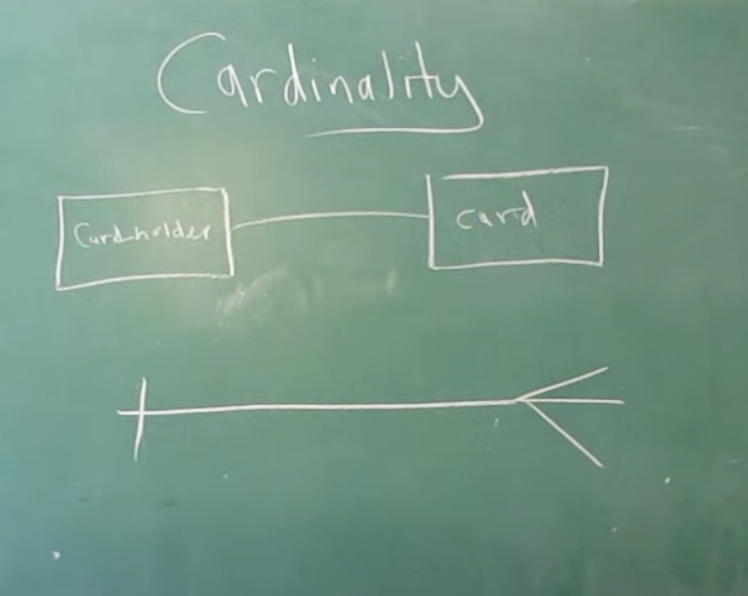 Cardinality
Cardholder
card